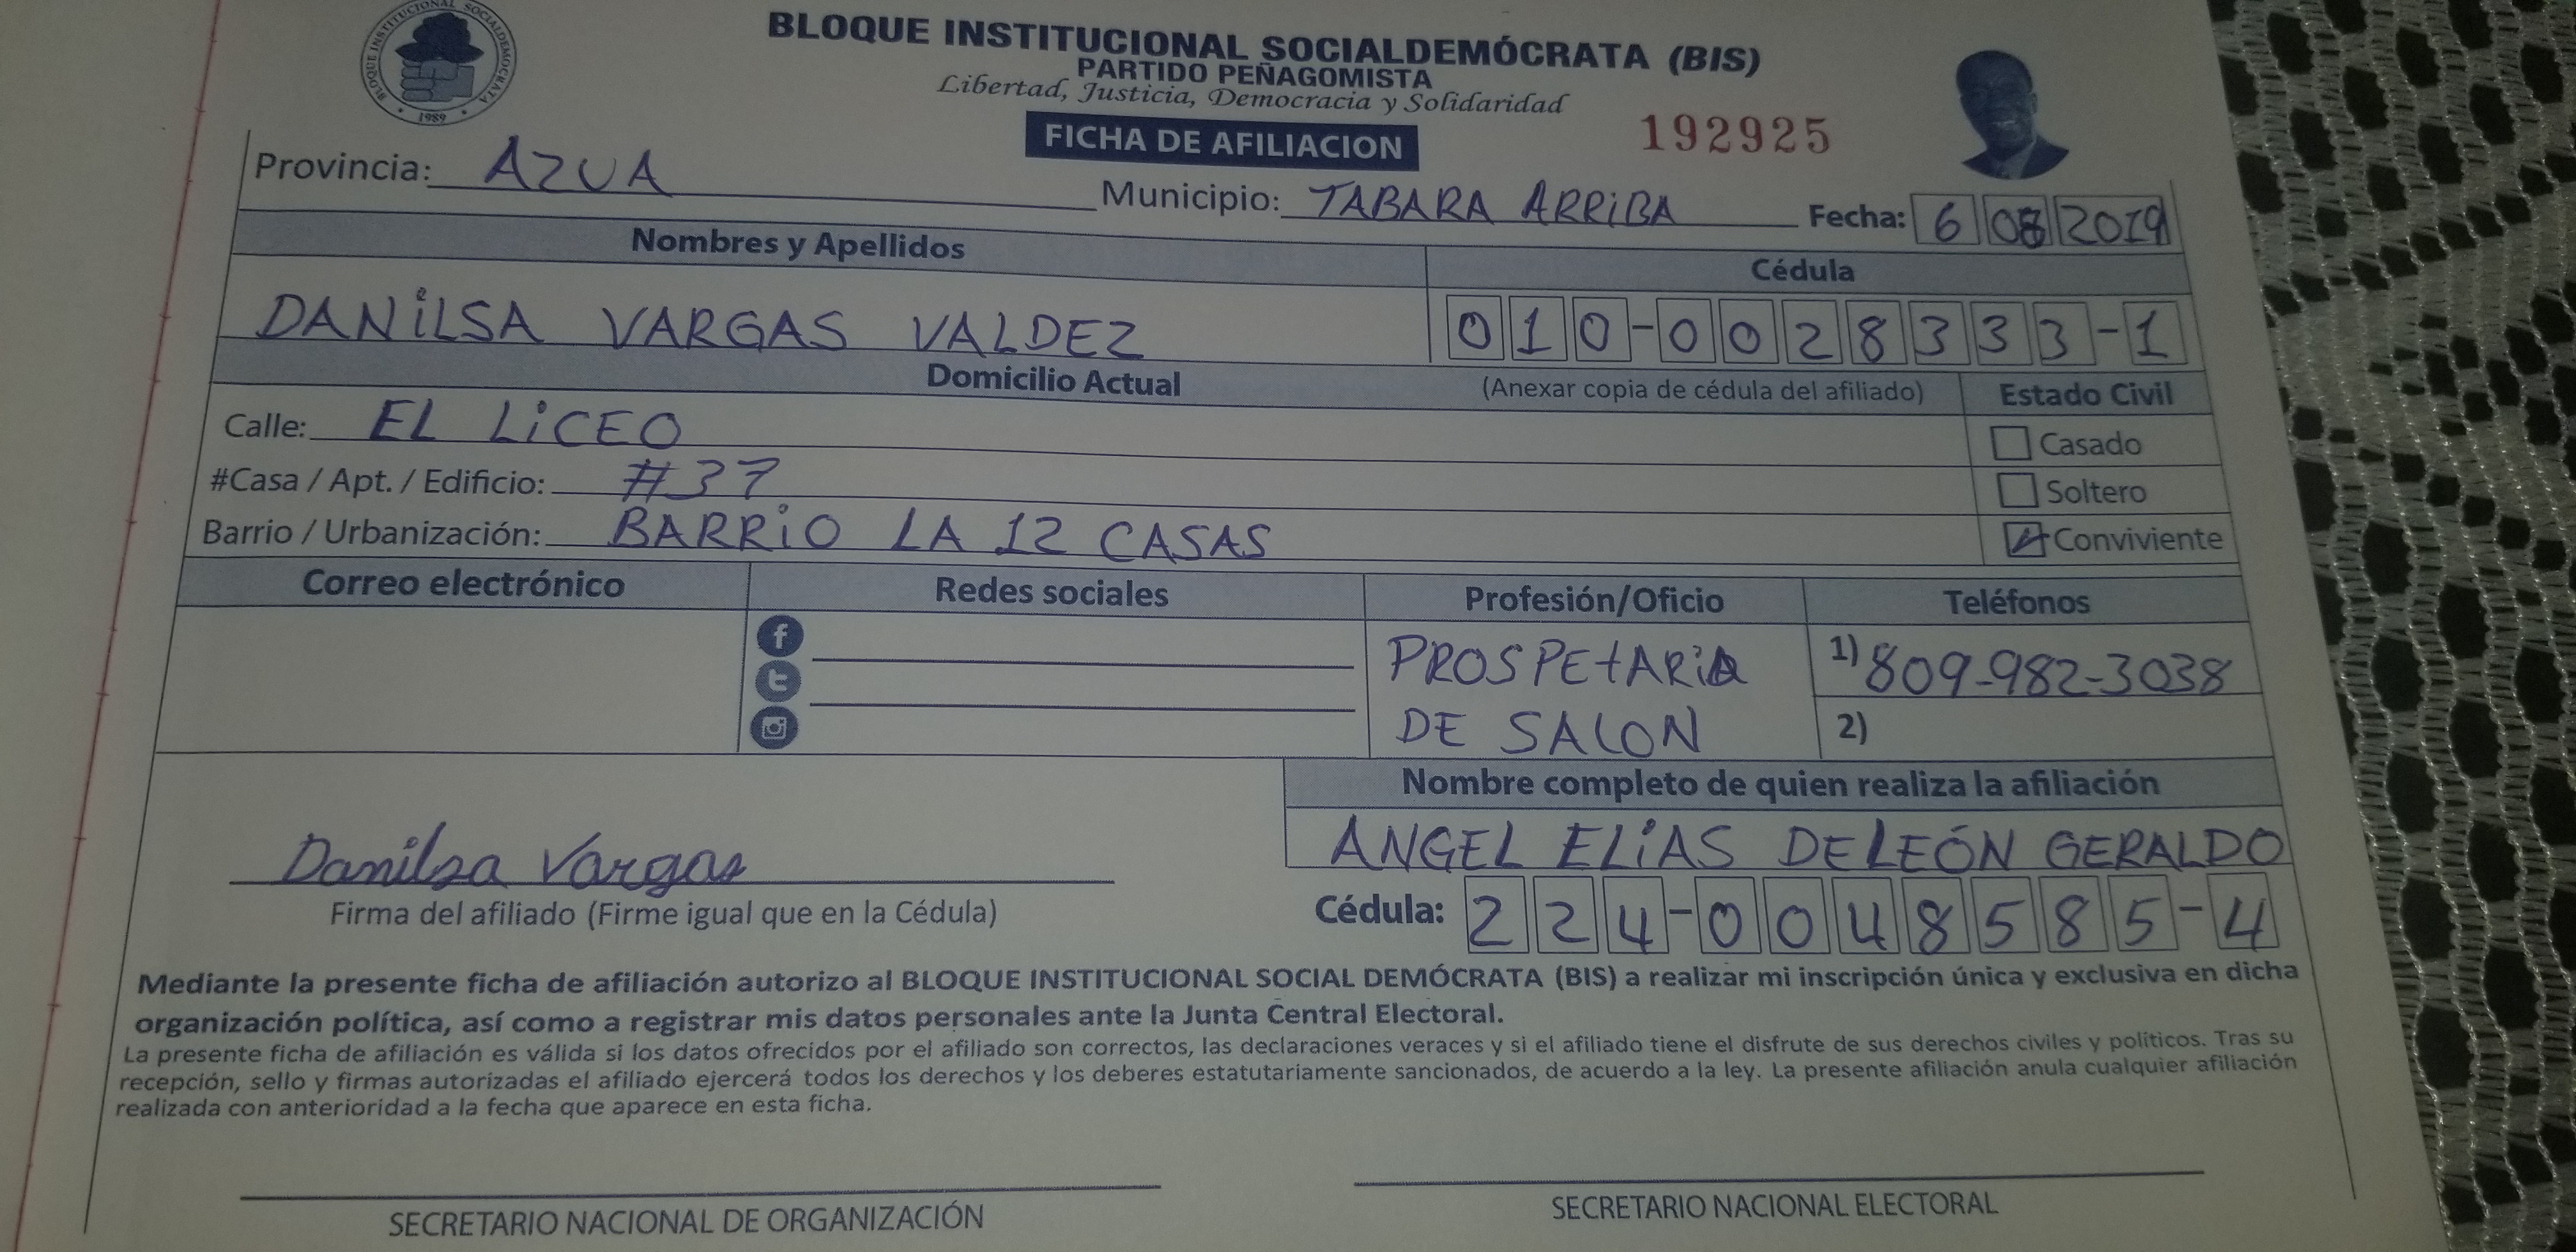 BLOQUE INSTITUCIONAL SOCIALDEMÓCRATA
1989
BLOQUE INSTITUCIONAL SOCIALDEMÓCRATA (BIS)
PARTIDO PEÑAGOMISTA
Libertad, Justicia, Democracia y Solidaridad
FICHA DE AFILIACION
192925
Provincia: AZUA Municipio: TABARA ARRiBA Fecha: 6 08 2019
Nombres y Apellidos Cédula
DANiLSA VARGAS VALDEZ 010-0028333-1
Domicilio Actual (Anexar copia de cédula del afiliado) Estado Civil
Calle: EL LiCEO Casado
#Casa / Apt. / Edificio: #37 Soltero
Barrio / Urbanización: BARRiO LA 12 CASAS Conviviente
Correo electrónico Redes sociales Profesión/Oficio Teléfonos
PROSPEtARiA 1) 809-982-3038
DE SALON 2)
Nombre completo de quien realiza la afiliación
ANGEL ELiAS DELEÓN GERALDO
Danilsa Vargas
Firma del afiliado (Firme igual que en la Cédula) Cédula: 224-0048585-4
Mediante la presente ficha de afiliación autorizo al BLOQUE INSTITUCIONAL SOCIAL DEMÓCRATA (BIS) a realizar mi inscripción única y exclusiva en dicha
organización política, así como a registrar mis datos personales ante la Junta Central Electoral.
La presente ficha de afiliación es válida si los datos ofrecidos por el afiliado son correctos, las declaraciones veraces y si el afiliado tiene el disfrute de sus derechos civiles y políticos. Tras su
recepción, sello y firmas autorizadas el afiliado ejercerá todos los derechos y los deberes estatutariamente sancionados, de acuerdo a la ley. La presente afiliación anula cualquier afiliación
realizada con anterioridad a la fecha que aparece en esta ficha.
SECRETARIO NACIONAL DE ORGANIZACIÓN SECRETARIO NACIONAL ELECTORAL